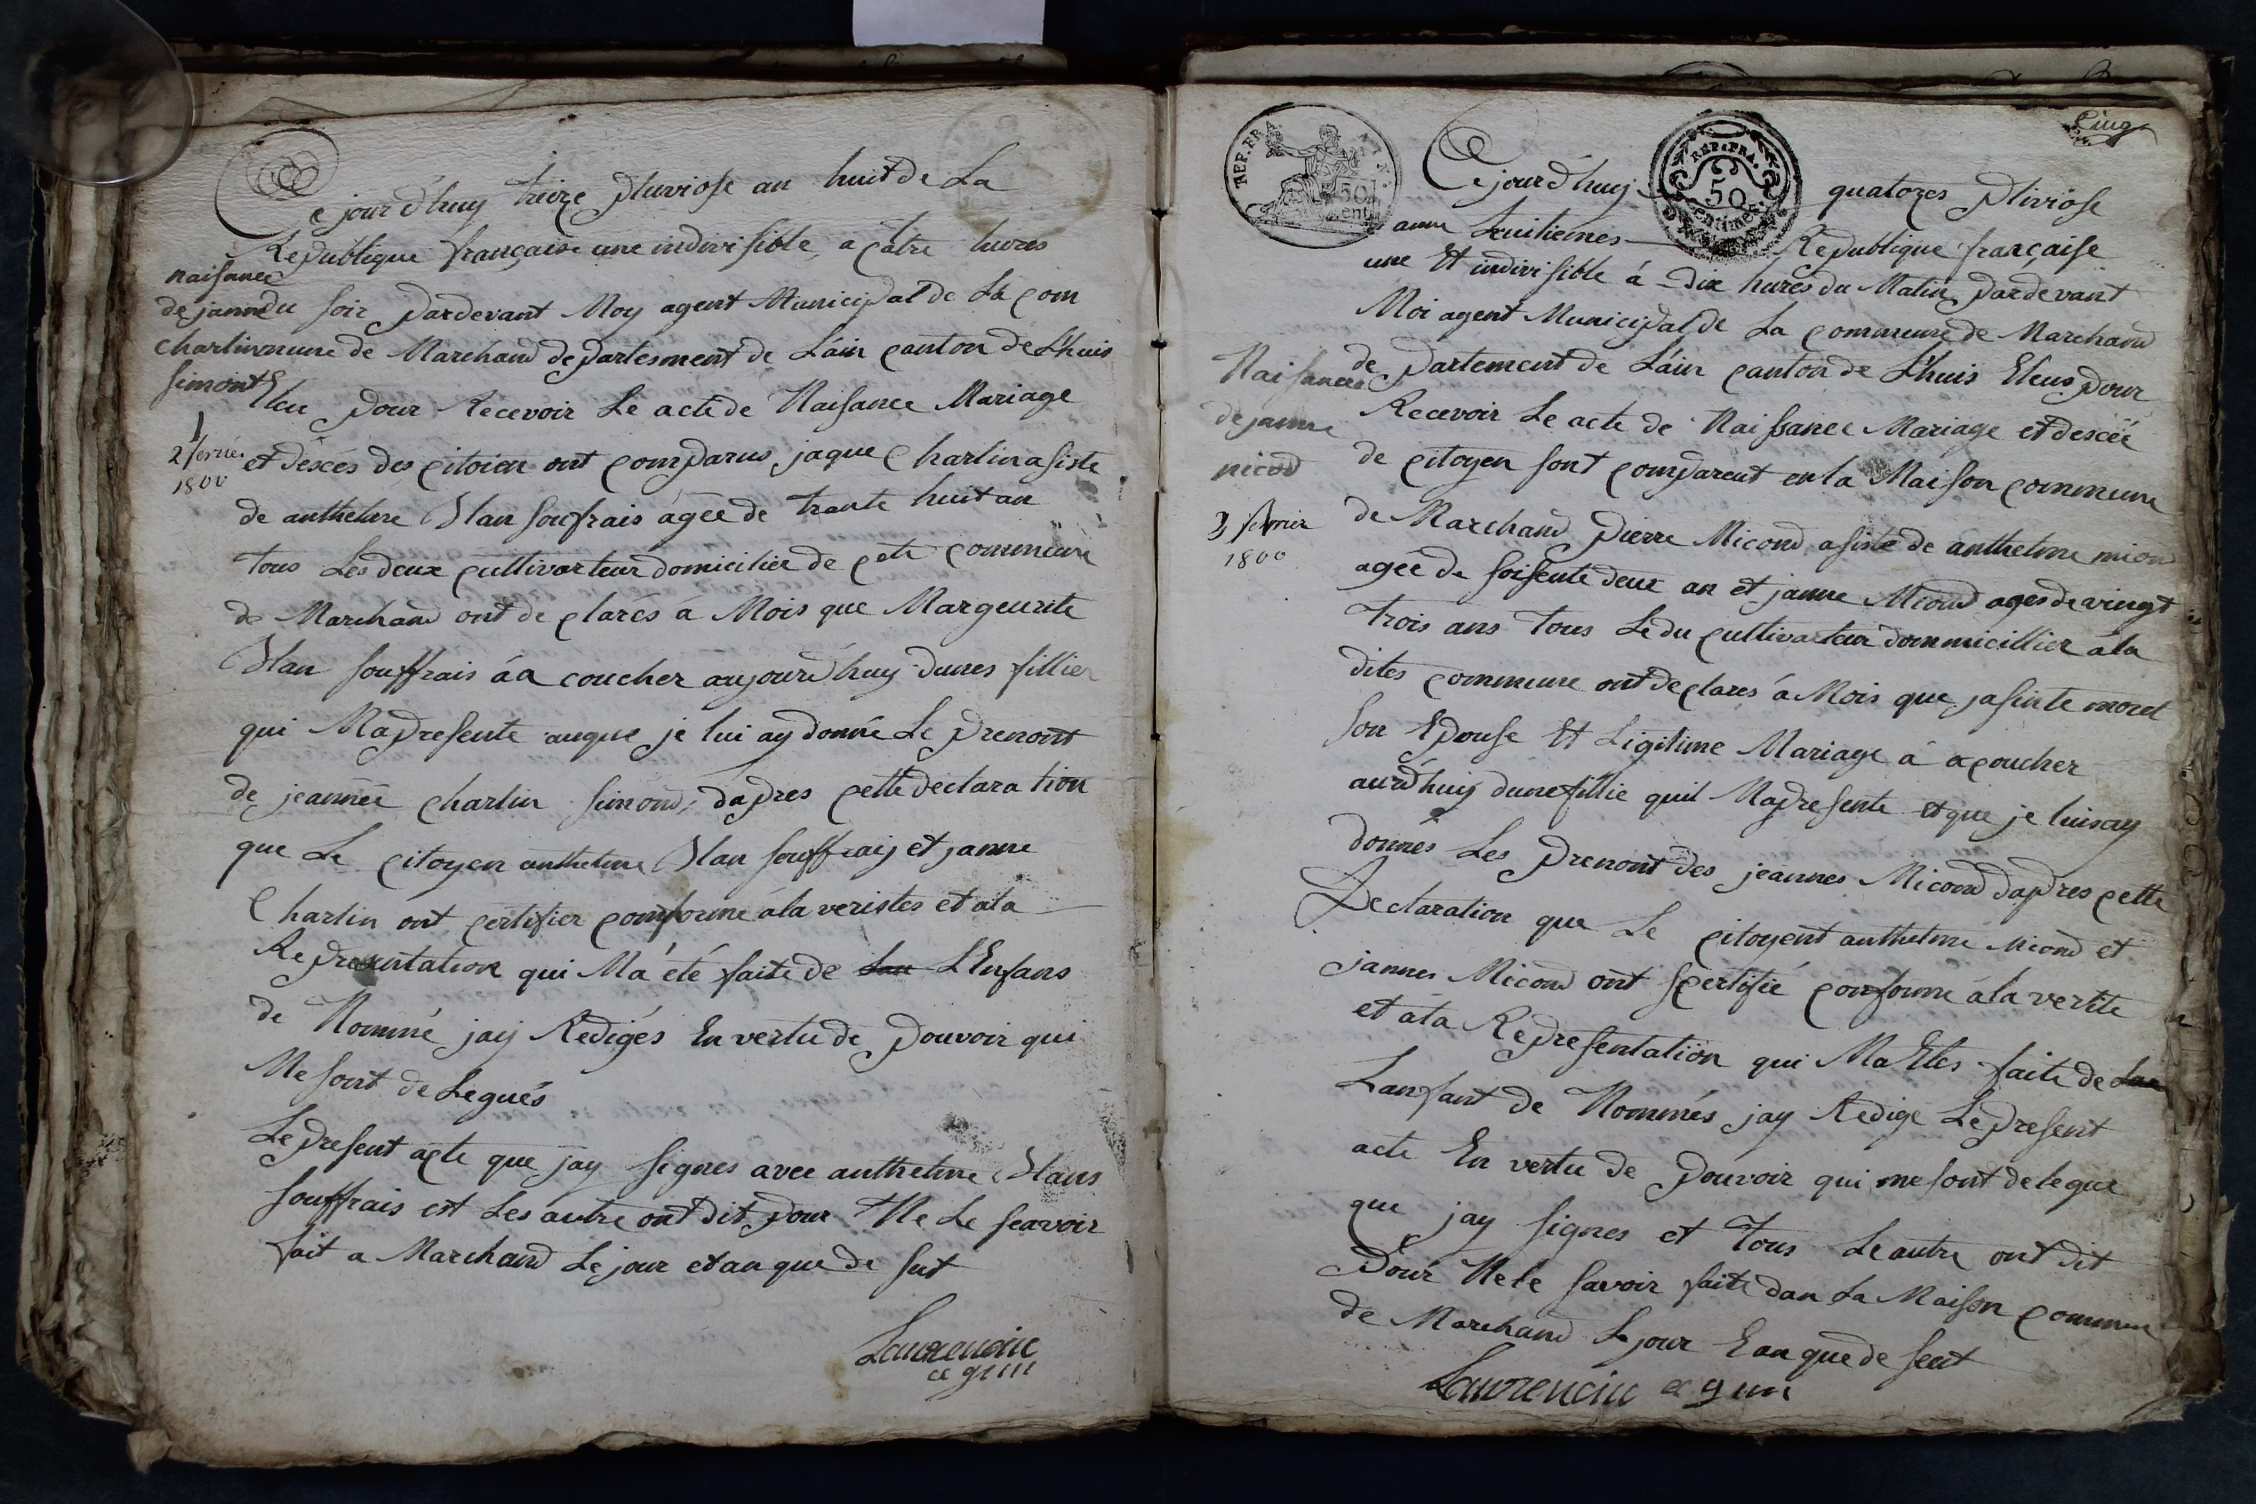 Ce jour d'huy treize pluviose an huit de La
Republique française une indivisible, a catre hures
naisance
de janne
charlin
simont
2 fevrier
1800
du soir pardevant Moy agent Municipal de La com
mune de Marchand departesment de L'ain canton de L'huis
Eleu pour Recevoir Le acte de Naisance Mariage
et désces des citoien ont comparus jaque Charlin asiste
de anthelme Blan soufrais agée de trante huit an
tous Les deux cultivarteur domicilier de cete commeune
de Marchand ont de clarés à Mois que Margeurite
Blan souffrais áa coucher aujourd'huy dunes fillier
qui Mapresente auque je lui ay donné Le prenont
de jeannée charlin simond, dapres cette declaration
que Le citoyen anthelme Blan souffraij et janne
Charlin ont certifier comforme ála veristes et ala
Representation qui Má été faite de Lan L'Enfans
de Nommé jaij Redigés En vertu de pouvoir qui
Me sont de Legués
Le present acte que jay signes avec anthelme Blans
souffrais est Les autre ont dit pour Ne Le scavoir
fait a Marchand Le jour et an que de sut
Laurencin
agm
REP. FRA.
50
cent
RÉP. FRA.
50
centimes
Cinq
Ce jourd'huij quatorzes Pliviose
anne huitiemes Republique française
une Et indivisible á dix hures du Matin pardevant
Moi agent Municipal de La commeune de Marchand
de partement de L'ain canton de L'huis Eleus pour
Naisances
de janne
micod
3 fevrier
1800
Recevoir Le acte de Naissance Mariage et descéé
de citoyen sont comparent en la Maison commeune
de Marchand pierre Micond asisté de anthelme mion
agée de soisente deux an et janne Micond ages de vingt
trois ans tous Le du cultivarteur dommicillier ála
dites commeune ont declares á Mois que jasinte morel
son Epouse Et Ligitime Mariage á acoucher
aurd'huij dune fillie quil Mapresente et que je luisay
donnés Les prenont des jeannes Micond dapres cette
Declaration que Le citoyent anthelme Micond et
jannes Micond ont scertifié conforme ála verite
et ála Representation qui Ma Etes faite de Lan
Lanfant de Nommés jay Redige Le present
acte En vertu de pouvoir qui me sont delegue
que jay signes et tous Le autre ont dit
pour Ne le savoir faite dan La Maison commeu
de Marchand Le jour E an que de seut
Laurencin agm